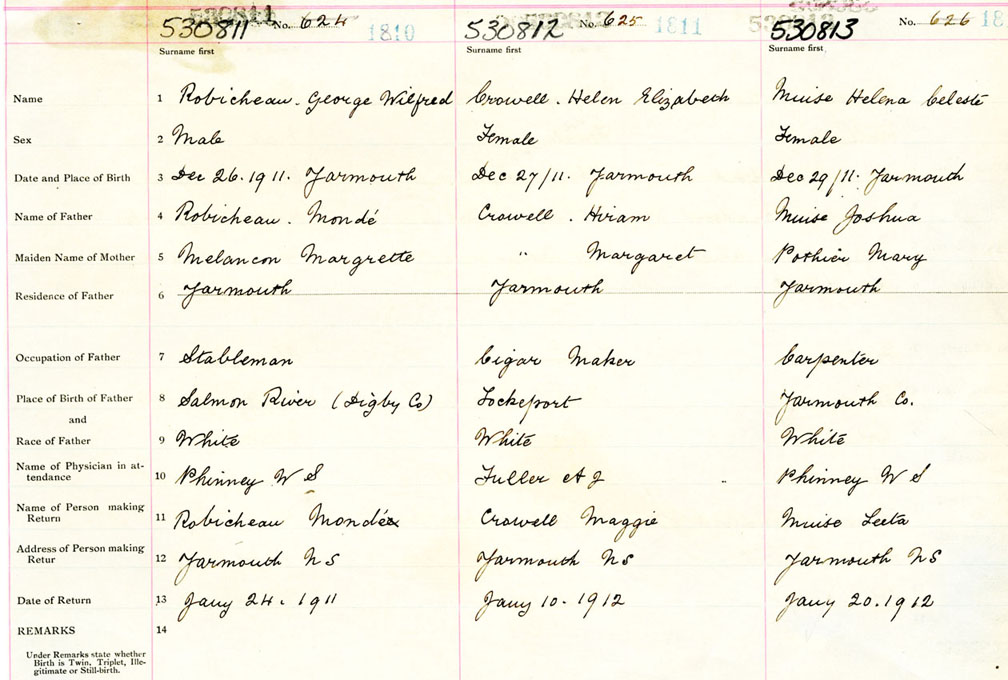 530811 No. 624 1810 530812 No. 625 1811 530813 No. 626 18
Surname first Surname first Surname first
Name 1 Robicheau. George Wilfred Crowell. Helen Elizabeth Muise Helena Celeste
Sex 2 Male Female Female
Date and Place of Birth 3 Dec 26. 1911. Yarmouth Dec 27/11. Yarmouth Dec 29/11. Yarmouth
Name of Father 4 Robicheau. Mondé Crowell. Hiram Muise Joshua
Maiden Name of Mother 5 Melancon Margrette " Margaret Pothier Mary
Residence of Father 6 Yarmouth Yarmouth Yarmouth
Occupation of Father 7 Stableman Cigar Maker Carpenter
Place of Birth of Father 8 Salmon River (Digby Co) Lockeport Yarmouth Co.
and
Race of Father 9 White White White
Name of Physician in at-
tendance 10 Phinney W S Fuller A J Phinney W S
Name of Person making
Return 11 Robicheau Mondé Crowell Maggie Muise Leeta
Address of Person making
Retur 12 Yarmouth NS Yarmouth NS Yarmouth NS
Date of Return 13 Jany 24. 1911 Jany 10. 1912 Jany 20. 1912
REMARKS 14
Under Remarks state whether
Birth is Twin, Triplet, Ille-
gitimate or Still-birth.